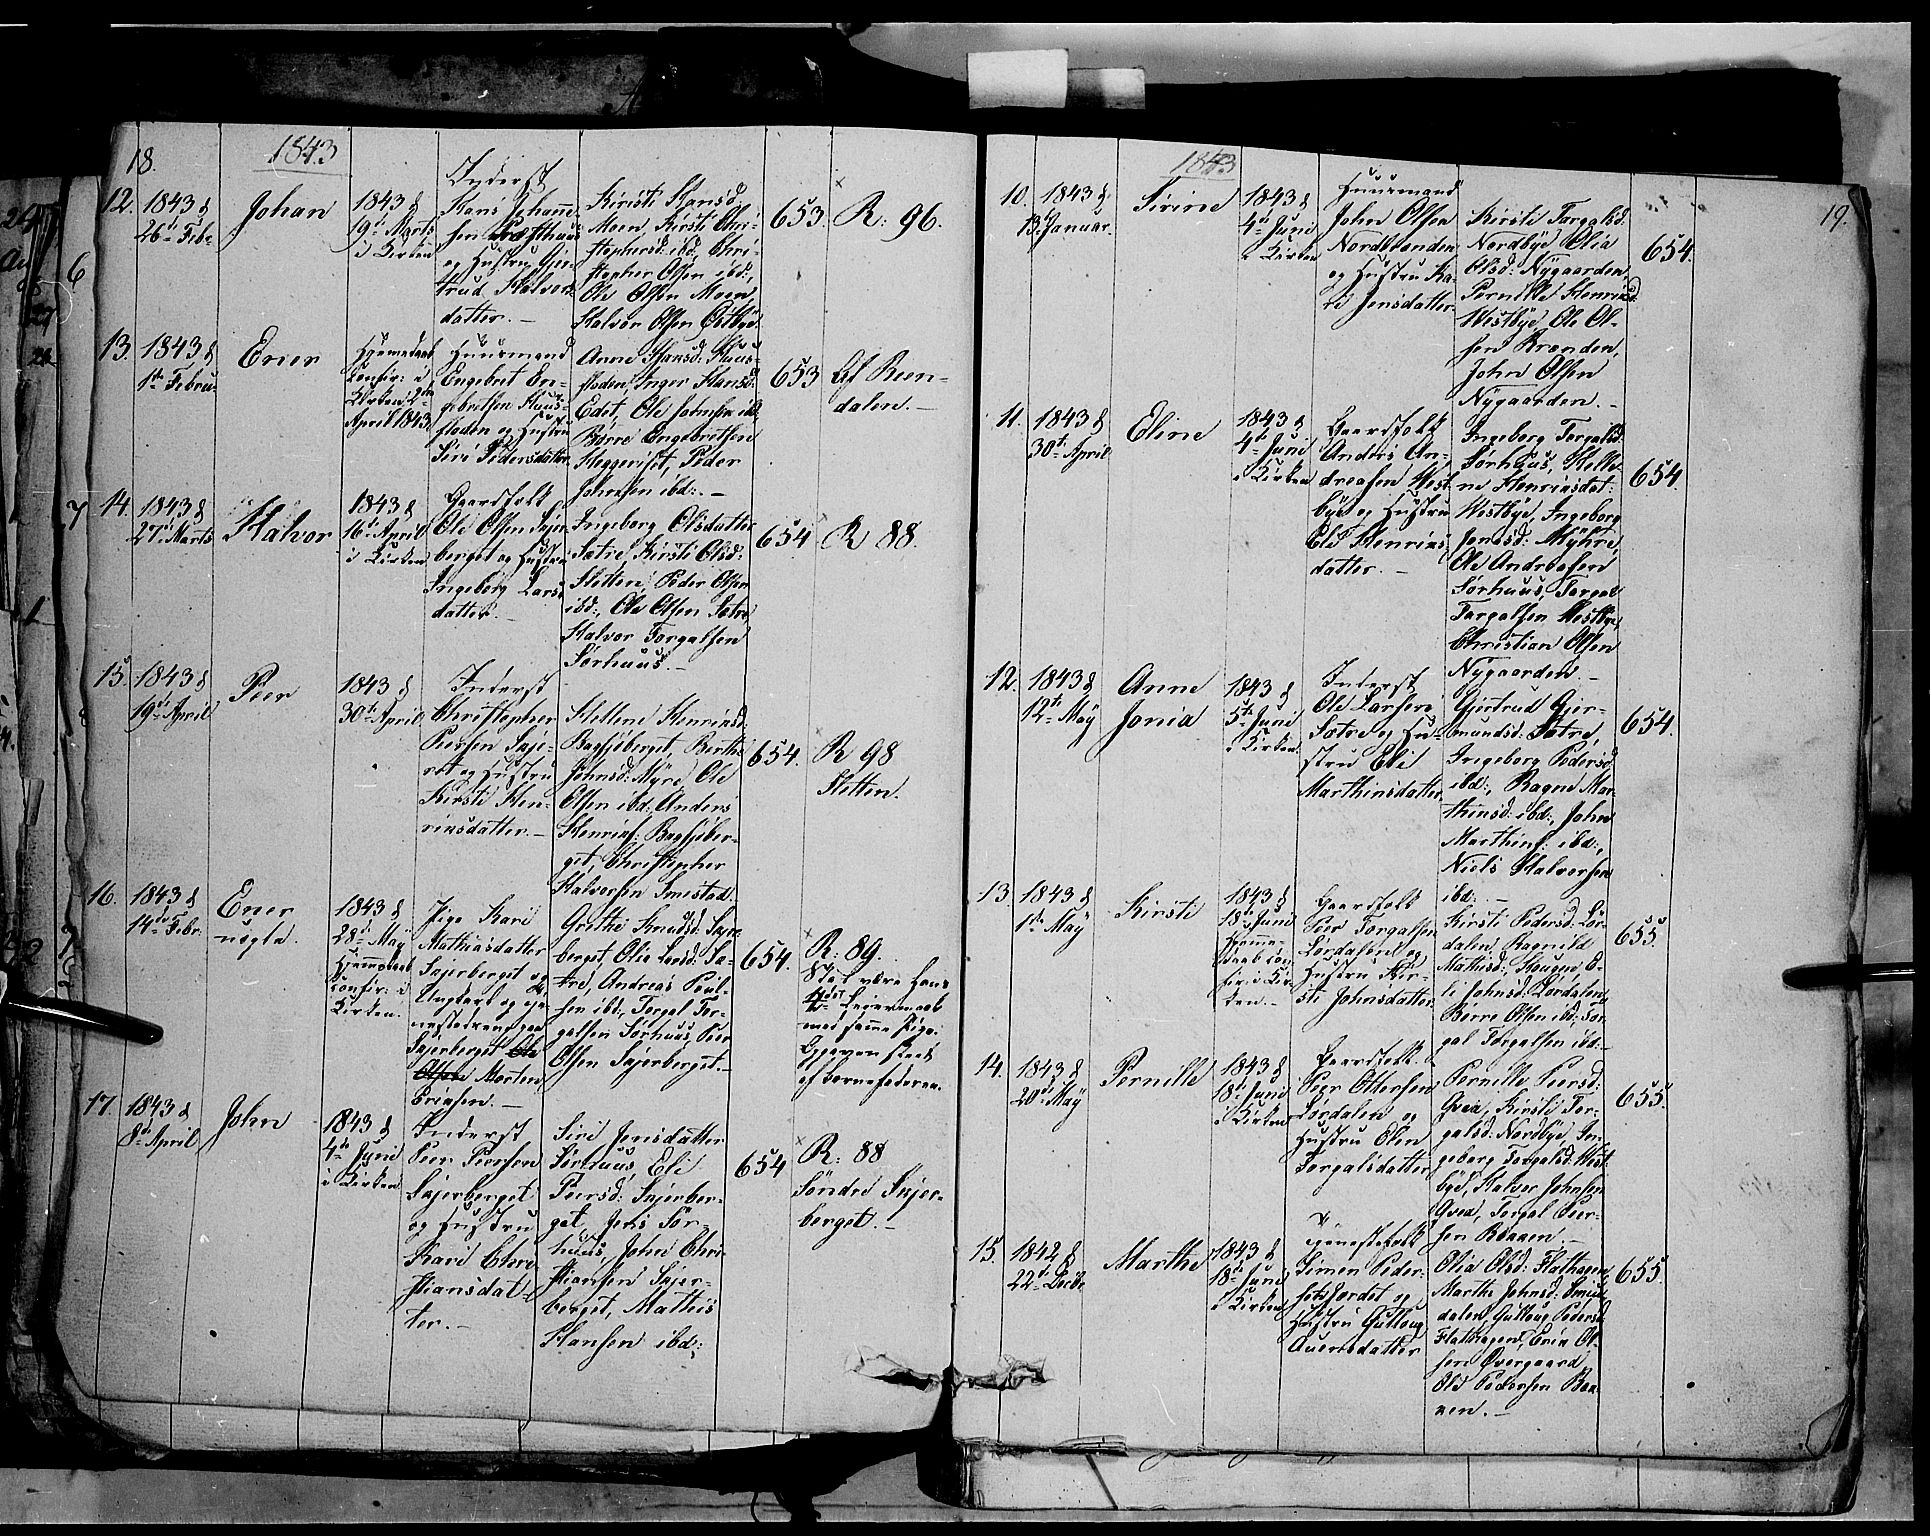 18.
1843
12.
1843 d
26d Febr
Johan
1843 d
19d Marts
i Kirken
Inderst
Hans Johanne-
sen Præsthuus
og Hustru Ger-
trud Halvors-
datter. —
Kirsti Hansd.
Moen, Kirsti Chri-
stophersd: ibd:, Chri-
stopher Olsen ibd:,
Ole Olsen Moen,
Halvor Olsen Østbye.
653.
R: 96.
13.
1843 d
1te Februar
Ener
Hjemmedøbt
Confir: i
Kirken 2den
April 1843
Huusmand
Engebret En-
gebretsen Huus-
floden og Hustru
Siri Pedersdatter
Anne Hansd: Huus-
floden, Inger Hansd:
Edet, Ole Johnsen ibd:
Børre Engebretsen
Heggeriset, Peder
Johnsen ibd:. —
653
Af Reen-
dalen. —
14.
1843 d
27d Marts
Halvor
1843 d
16d April
i Kirken
Gaardfolk
Ole Olsen Skjer-
berget og Hustru
Ingeborg Lars-
datter. —
Ingeborg Olsdatter
Sætre, Kirsti Olsd:
Sletten, Peder Olsen
ibd:, Ole Olsen Sætre
Halvor Torgalsen
Sørhuus. —
654
R 88.
15.
1843 d
19d April
Peer
1843 d
30te April
Inderst
Christopher
Peersen Skje-
ret og Hustru
Kirsti Hen-
rinsdatter. —
Hellene Henrinsd:
Bagsjøberget, Berthe
Johnsd: Myre, Ole
Olsen ibd: Anders
Henrins: Bagsjøber-
get, Christopher
Halvorsen Smestad.
654.
R 98
Sletten.
16.
1843 d
14de Febr:
Ener
uægte.
1843 d
28d May
Hjemmedøbt
Confir: i
Kirken.
Pige Kari
Mathiasdatter
Skjerberget og
Ungkarl og tje-
nestedreng paa
Skjerberget Ole
Olsen Morten
Erensen. —
Grethe Knudsd: Skjer-
berget, Olia Larsd: Sæ-
tre, Andreas Poul-
sen ibd:, Torgal Tor-
galsen Sørhuus, Peer
Olsen Skjerberget. —
654.
R: 89.
Skal være Hans
Leiermaal
med samme Pige.
af Barnefaderen.
17.
1843 d
8de April
John
1843 d
4de Juni
i Kirken
Inderst
Peer Peersen
Skjerberget
og Hustru
Kari Chri-
stiansdat-
ter. —
Siri Jensdatter
Sørhuus, Eli
Peersd: Skjerber-
get, Jens Sør-
huus, John Chri-
stiansen Skjer-
berget, Mathis
Hansen ibd:,
654
R: 88
Søndre Skjer-
berget. —
1843
19.
10.
1843 d
13d Januar.
Sirine
1843 d
4de Juni
i Kirken
Huusmand
John Olsen
Nordstranden
og Hustru Ka-
ri Jensdatter
Kirsti Torgalsd:
Nordbye, Olia
Olsd: Nygaarden,
Pernille Henrinsd:
Westbye, Ole Ol-
sen Brænden,
John Olsen
Nygaarden. —
654.
11.
1843 d
30te April
Eline
1843 d
4de Juni
i Kirken
Gaardfolk
Anders An-
dreasen West-
bye og Hustru
Eli Henrins-
datter. —
Ingeborg Torgalsd:
Sørhuus, Helle-
ne Henrinsdat:
Westbye, Ingeborg
Jensd: Myhre,
Ole Andreasen
Sørhuus, Torgal
Torgalsen Westbye,
Christian Olsen
Nygaarden. —
654.
12.
1843 d
12te May
Anne
Jonia
1843 d
5te Juni
i Kirken
Inderst
Ole Larsen
Sætre og Hu-
stru Eli
Marthinsdatter
Gjertrud Gjer-
mundsd: Sætre,
Ingeborg Pedersd:
ibd:, Ragne Mar-
thinsd: ibd:, John
Marthins: ibd:,
Niels Halvorsen
ibd:. —
654.
13.
1843 d
1te May
Kirsti
1843 d
18d Juni
Hjemme-
døbt con-
fir: i Kir-
ken. —
Gaardfolk
Peer Torgalsen
Lørdalen og
Hustru Kir-
sti Johnsdatter
Kirsti Pedersd: Lør-
dalen, Ragnild
Mathisd: Haugen, E-
li Johnsd: Lørdalen,
Børre Olsen ibd:, Tor-
gal Torgalsen ibd:—
655.
14.
1843 d
20d May
Pernille
1843 d
18d Juni
i Kirken
Gaardfolk
Peer Ottersen
Lørdalen og
Hustru Olin
Torgalsdatter
Pernille Peersd:
Qvea, Kirsti Tor-
galsd: Nordbye, In-
geborg Torgalsd: West-
bye, Halvor Johnsen
Qvea, Torgal Peer-
sen Baaen. —
655.
15.
1842 d
22d Decbr
Marthe
1843 d
18d Juni
i Kirken
Tjenestefolk
Simen Peder-
sen Jordet og
Hustru Guttoug
Auensdatter
Olia Olsd: Flathagen,
Marthe Johnsd: Smeds-
dalen, Guttoug Pedersd:
Flathagen, Erik Ol-
sen Øvergaard,
Ole Pedersen Baa-
nen. —
655.